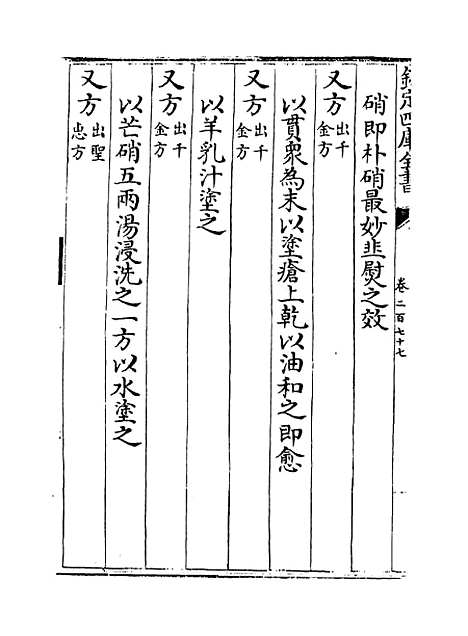 欽定四庫全書
卷二百七十七
硝即朴硝最妙韭熨之效
又方出千金方
以貫衆為末以塗瘡上乾以油和之即愈
又方出千金方
以羊乳汁塗之
又方出千金方
以芒硝五兩湯浸洗之一方以水塗之
又方出聖惠方